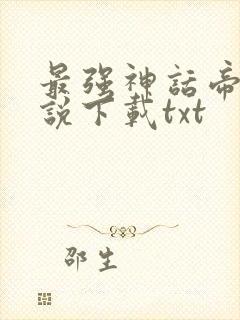 最强神話帝
説下載txt
邵生